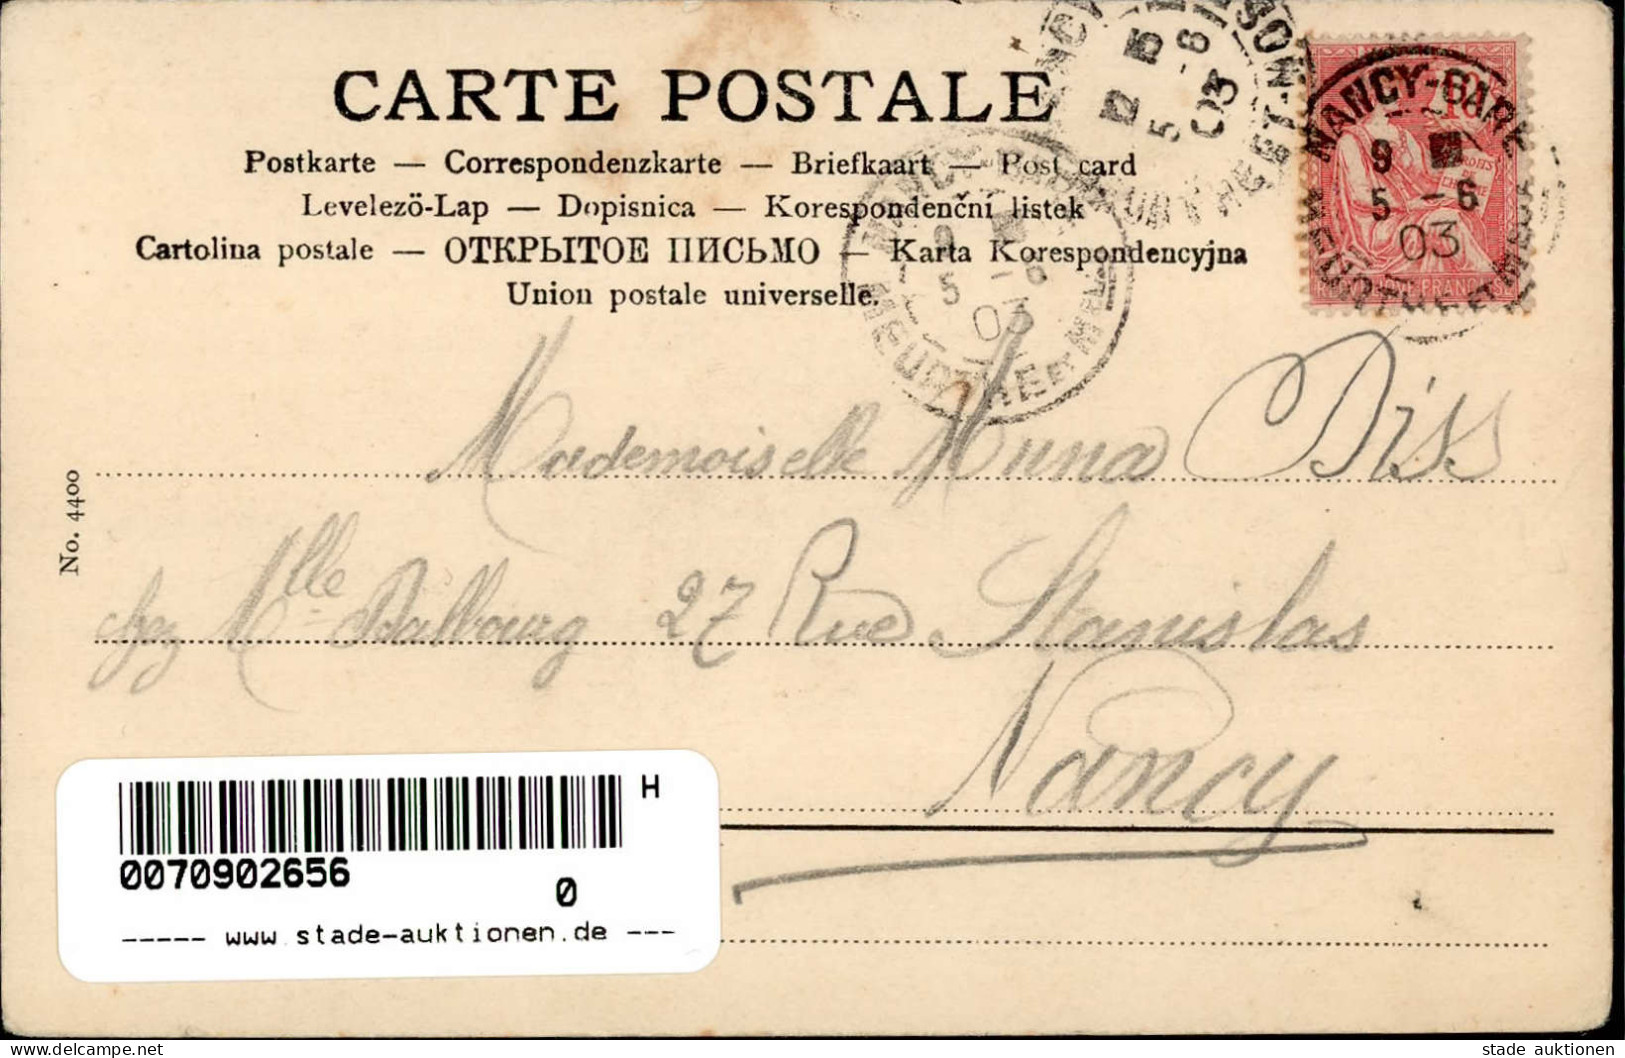 CARTE POSTALE
Postkarte — Correspondenzkarte — Briefkaart — Post card
Levelezö-Lap — Dopisnica — Korespondenční listek
Cartolina postale — ОТКРЫТОЕ ПИСЬМО — Karta Korespondencyjna
Union postale universelle.
NANCY-GARE
9
5 - 6
03
MEURTHE-ET-MOSELLE
12
5 - 6
03
NANCY-GARE
9
5 - 6
03
MEURTHE ET M
10
No. 4400
Mademoiselle Diss
chez Mlle 27 Rue Stanislas
Nancy
H
0070902656
0
----- www.stade-auktionen.de ---
www.delcampe.net
stade auktionen